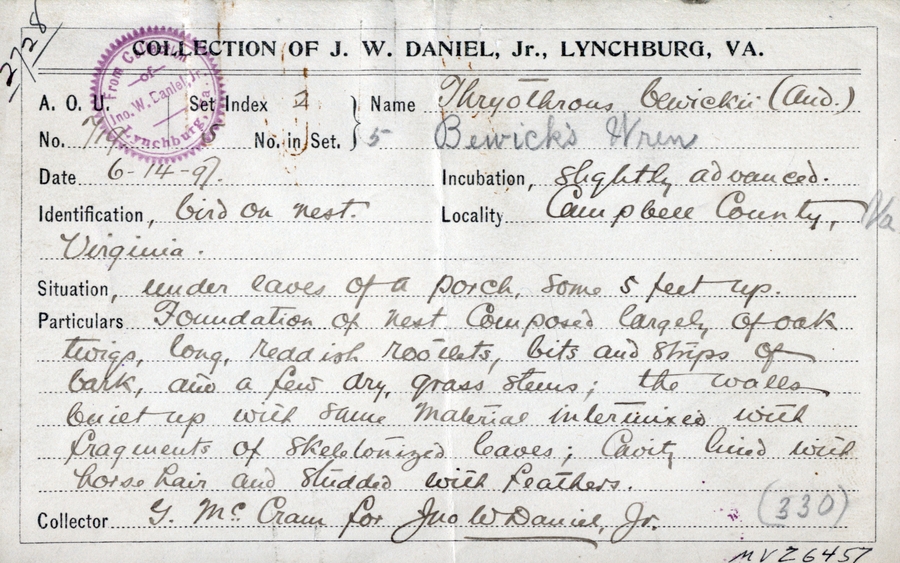 2/28
COLLECTION OF J. W. DANIEL, Jr., LYNCHBURG, VA.
From Collection of Jno. W. Daniel, Jr. Lynchburg, Va.
A. O. U. Set Index 2 Name Thryothrous bewickii (Aud.)
No. 719 No. in Set. 5 Bewick's Wren
Date 6-14-97. Incubation, slightly advanced.
Identification, bird on nest. Locality Campbell County, Va
Virginia.
Situation, under eaves of a porch, some 5 feet up.
Particulars Foundation of nest composed largely of oak
twigs, long, reddish rootlets, bits and strips of
bark, and a few dry, grass stems; the walls
built up with same material intermixed with
fragments of skeletonized leaves; Cavity lined with
horse hair and studded with feathers.
(330)
Collector G. McCram for Jno W Daniel, Jr.
MVZ6457